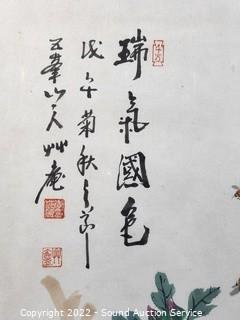 瑞氣國色
戊午菊秋之節
五峯山人艸庵
Copyright 2022 - Sound Auction Service